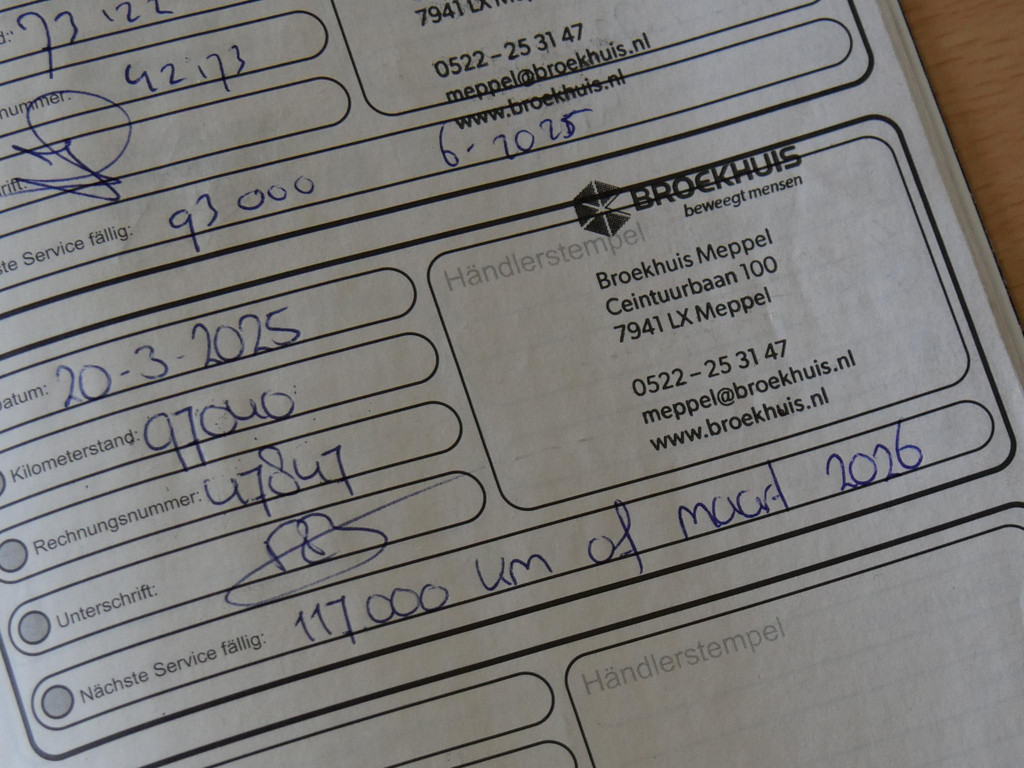 73 122
7941 LX Meppel
nummer: 42173
0522 – 25 31 47
meppel@broekhuis.nl
www.broekhuis.nl
rift:
ste Service fällig: 93 000 6 - 2025
BROEKHUIS
beweegt mensen
Händlerstempel
Broekhuis Meppel
Ceintuurbaan 100
7941 LX Meppel
0522 – 25 31 47
meppel@broekhuis.nl
www.broekhuis.nl
Datum: 20-3-2025
Kilometerstand: 97040
Rechnungsnummer: 47847
Unterschrift:
Nächste Service fällig: 117.000 km of maart 2026
Händlerstempel